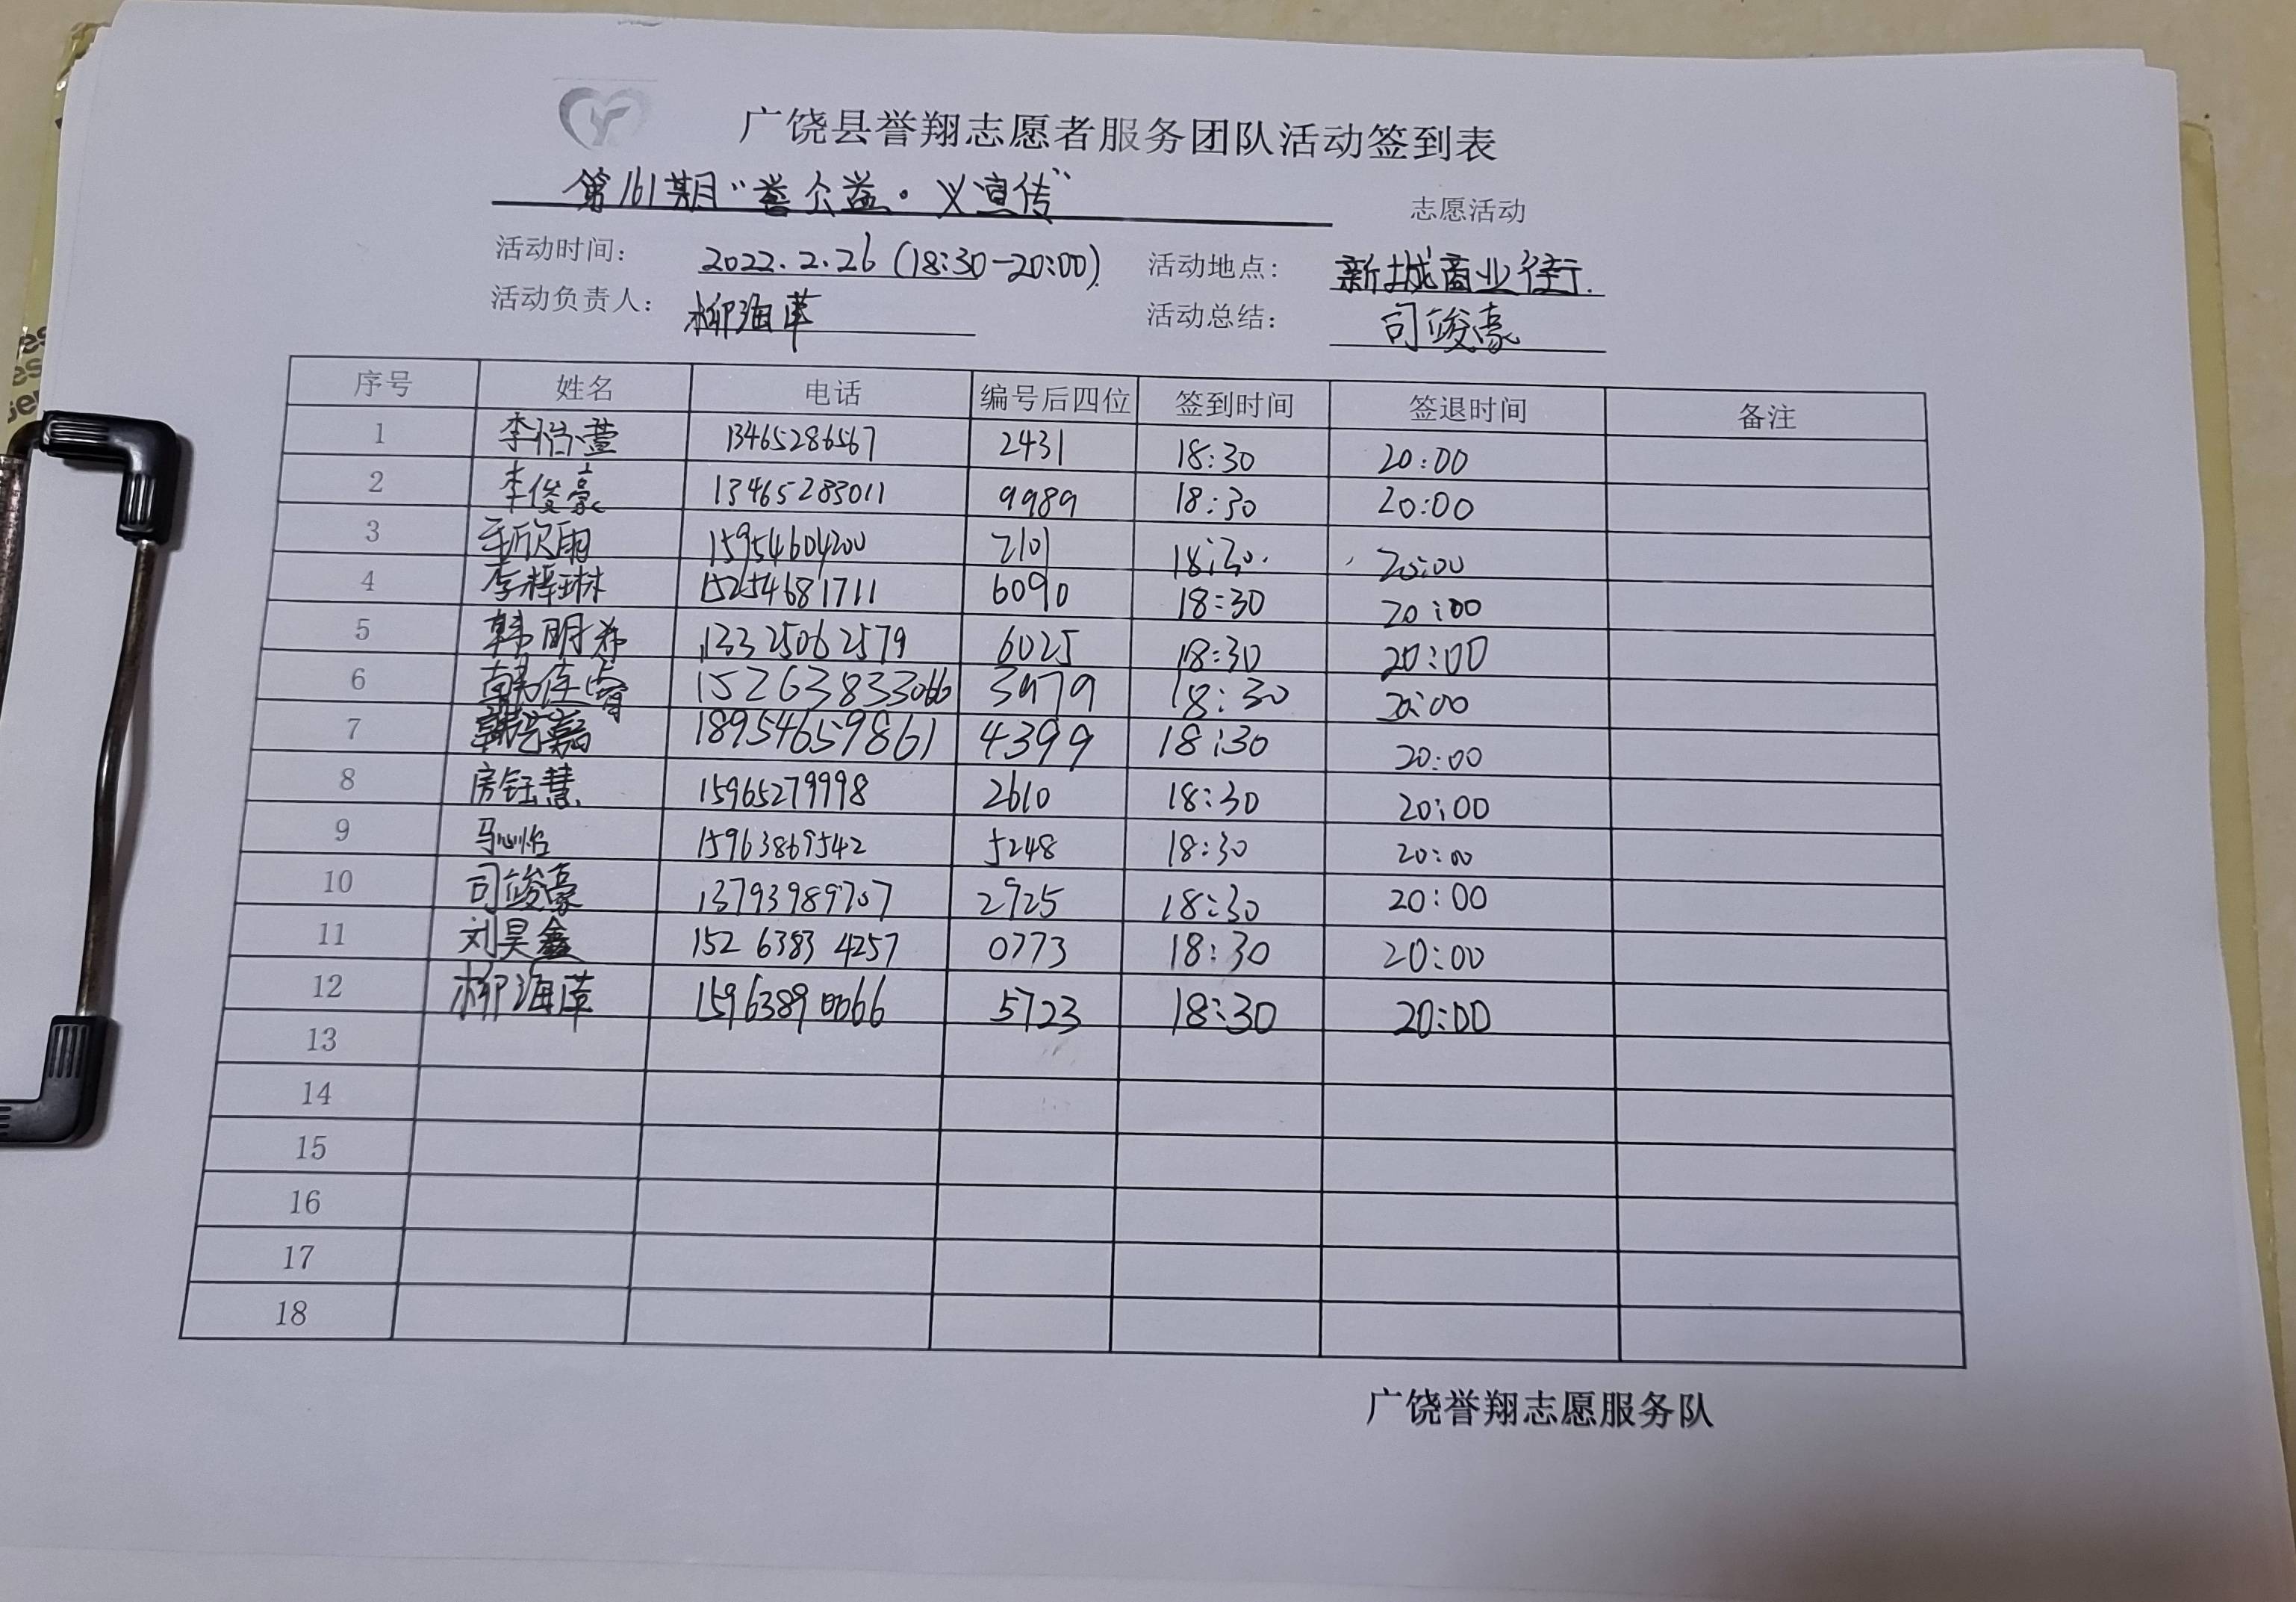 广饶县誉翔志愿者服务团队活动签到表
第161期“誉公益·义宣传” 志愿活动
活动时间： 2022.2.26 (18:30-20:00) 活动地点： 新城商业街.
活动负责人： 柳海苹 活动总结： 司竣豪
序号 姓名 电话 编号后四位 签到时间 签退时间 备注
1 李怡萱 13465286567 2431 18:30 20:00
2 李俊豪 13465283011 9989 18:30 20:00
3 欣雨 15954604200 2101 18:30. 20:00
4 李梓琳 15254681711 6090 18:30 20:00
5 韩明希 13325062579 6025 18:30 20:00
6 韩佳睿 15263833066 3979 18:30 20:00
7 18954659861 4399 18:30 20:00
8 房钰慧 15965279998 2610 18:30 20:00
9 马心怡 15963869542 5248 18:30 20:00
10 司竣豪 13793989707 2925 18:30 20:00
11 刘昊鑫 152 6383 4257 0773 18:30 20:00
12 柳海苹 15963890066 5723 18:30 20:00
13
14
15
16
17
18
广饶誉翔志愿服务队